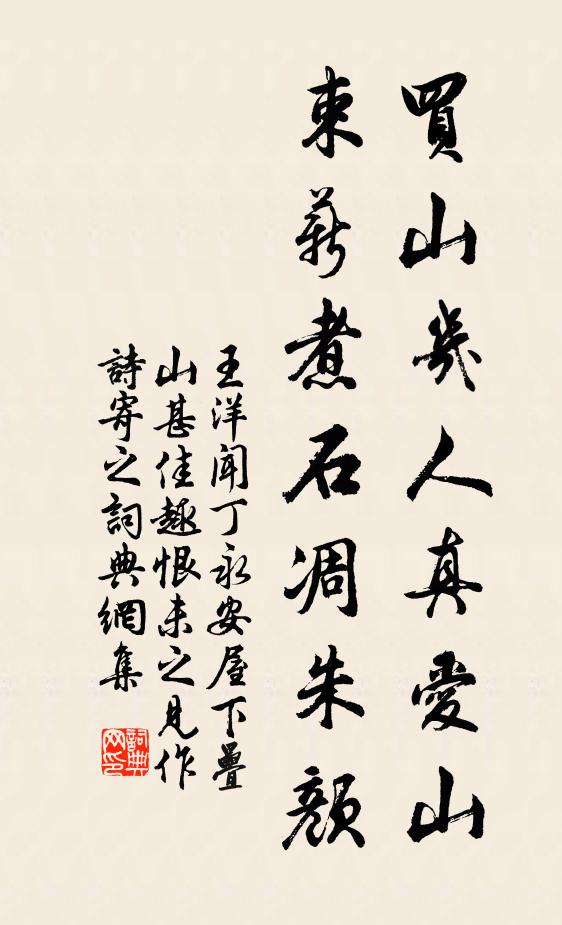 買山幾人真愛山
束薪煮石凋朱顏
王洋聞丁永安屋下疊
山甚佳趣恨未之見作
詩寄之詞典網集
詞典网印